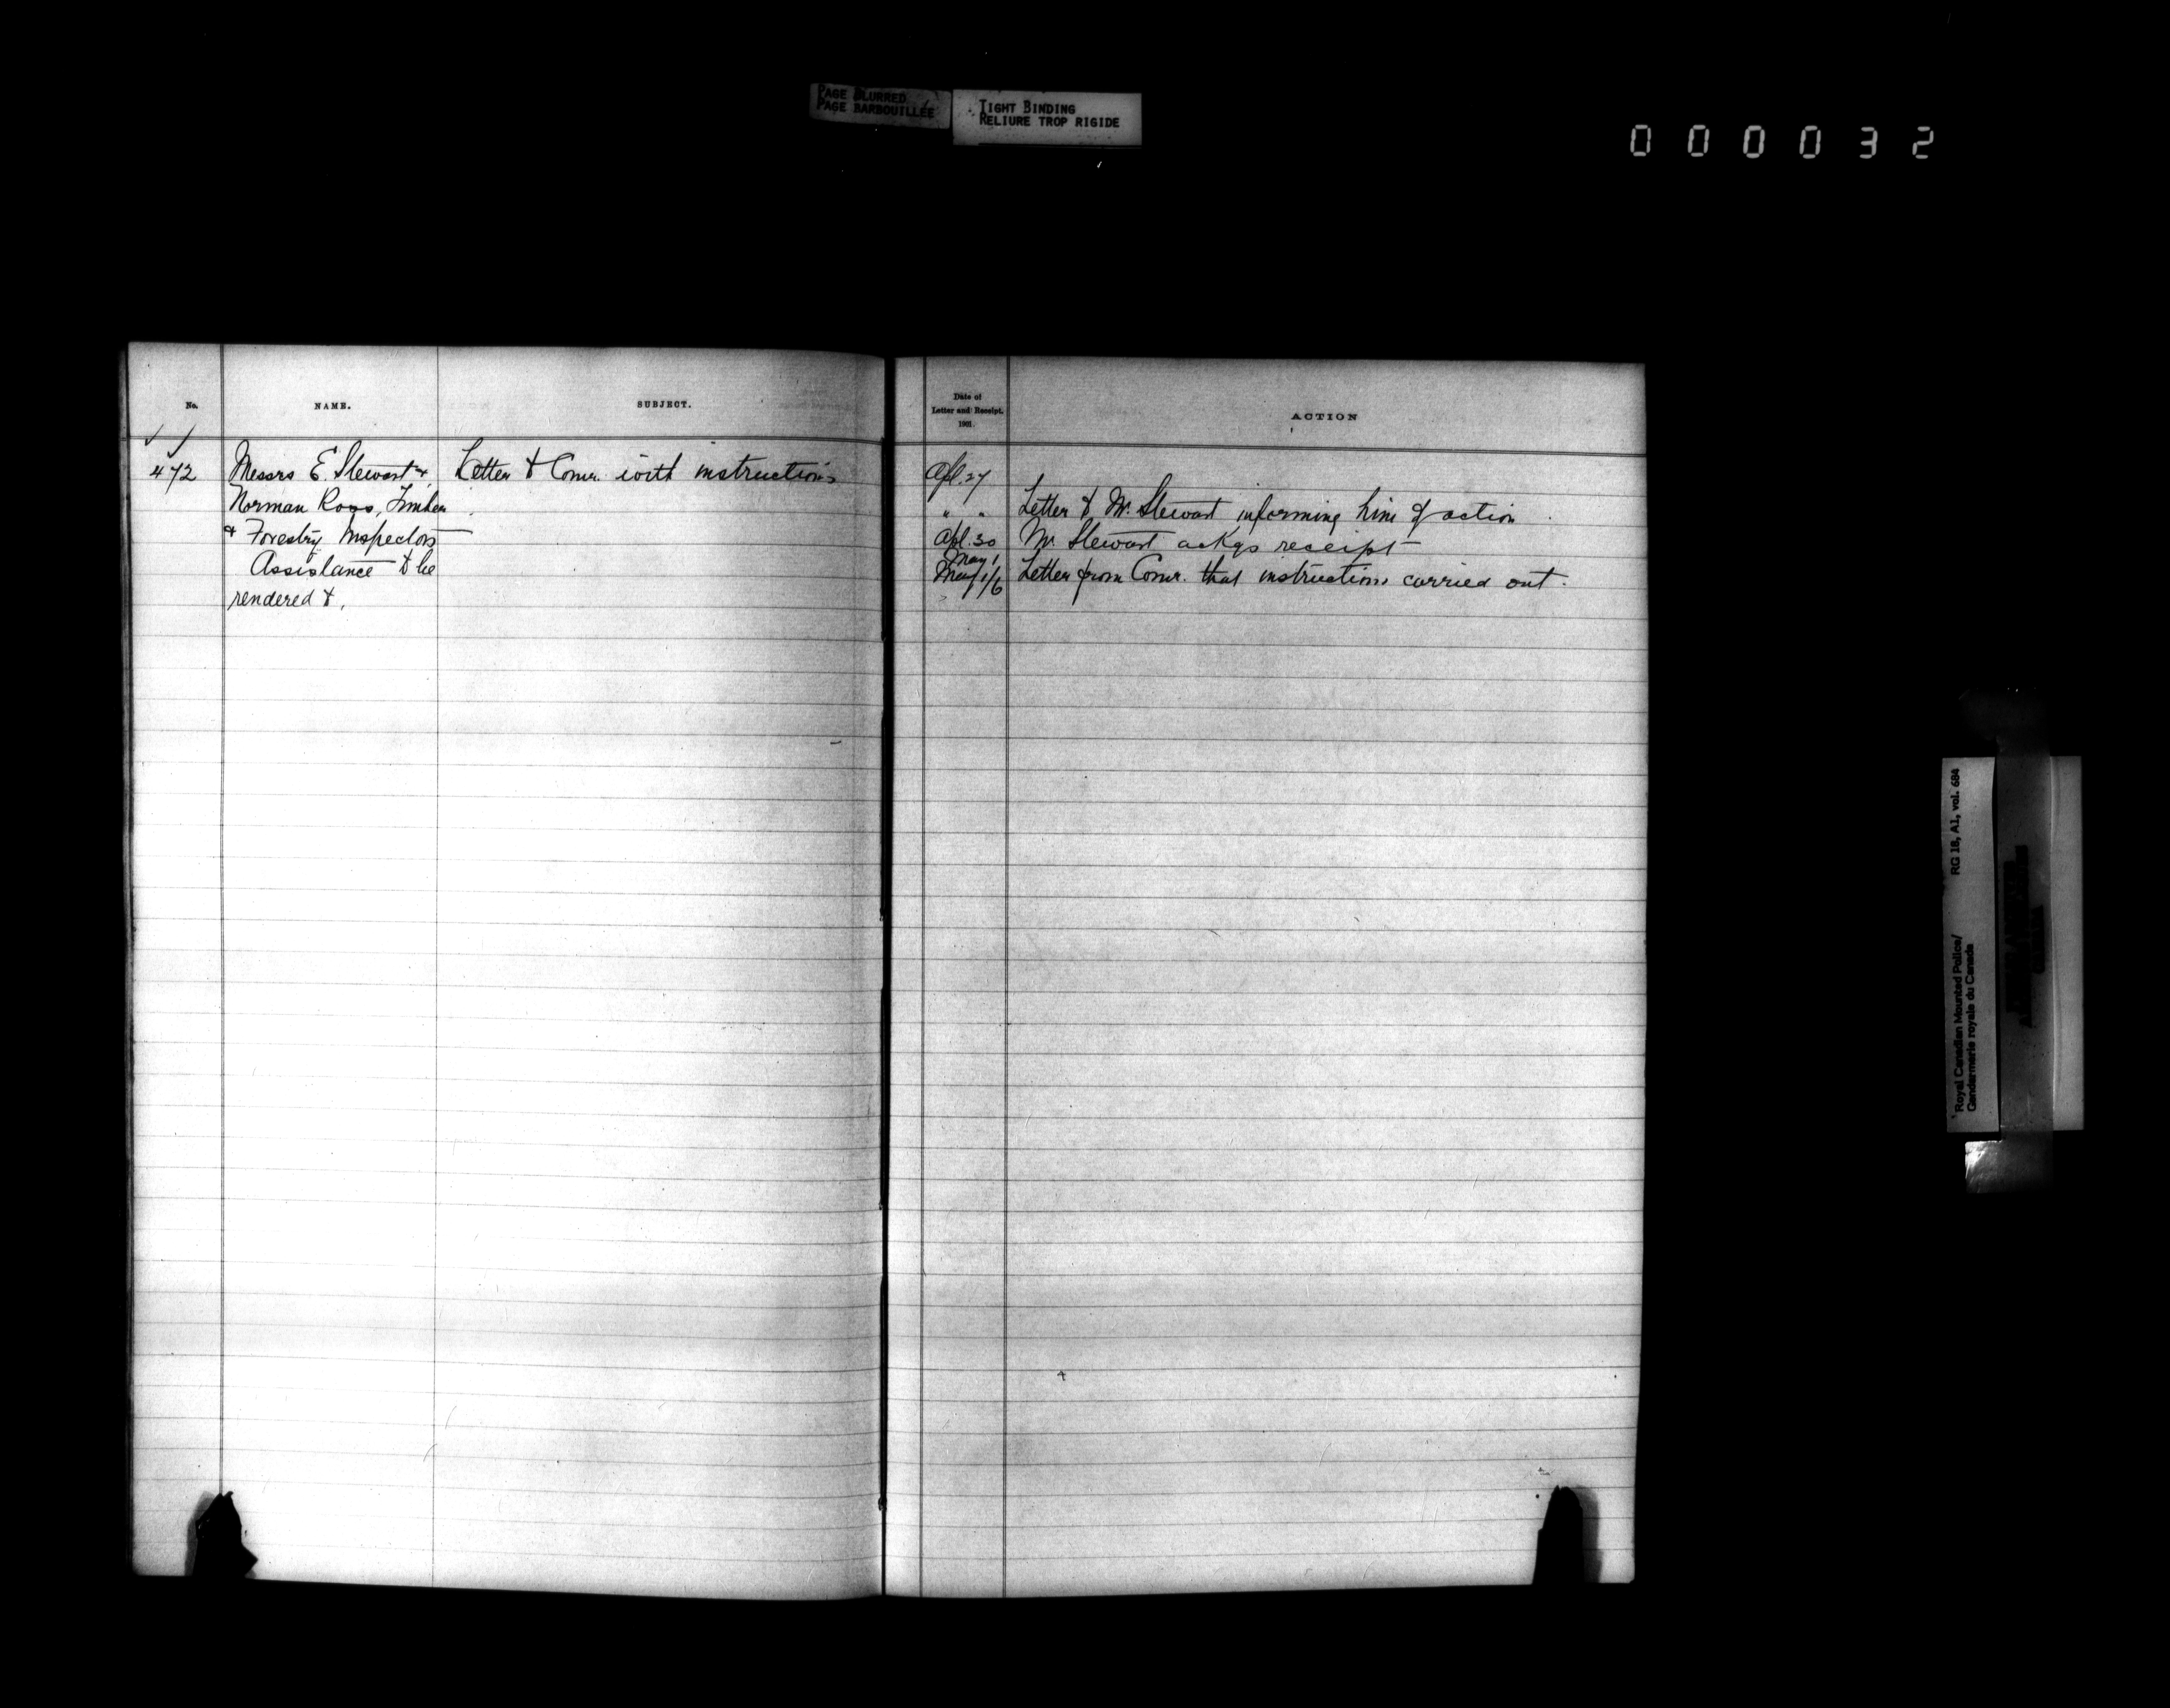 PAGE BLURRED
PAGE BARBOUILLÉE
TIGHT BINDING
RELIURE TROP RIGIDE
000032
No.
NAME.
SUBJECT.
472
Messrs E. Stewart &
Norman Ross, Timber
& Forestry Inspectors
Assistance to be
rendered to.
Letter to Comr. with instructions
Date of
Letter and Receipt.
1901.
ACTION
Apl. 27
" " Letter to Mr. Stewart informing him of action
Apl. 30 Mr. Stewart ackgs receipt
May 1
May 1/6 Letter from Comr. that instructions carried out.
RG 18, A1, vol. 684
Royal Canadian Mounted Police/
Gendarmerie royale du Canada